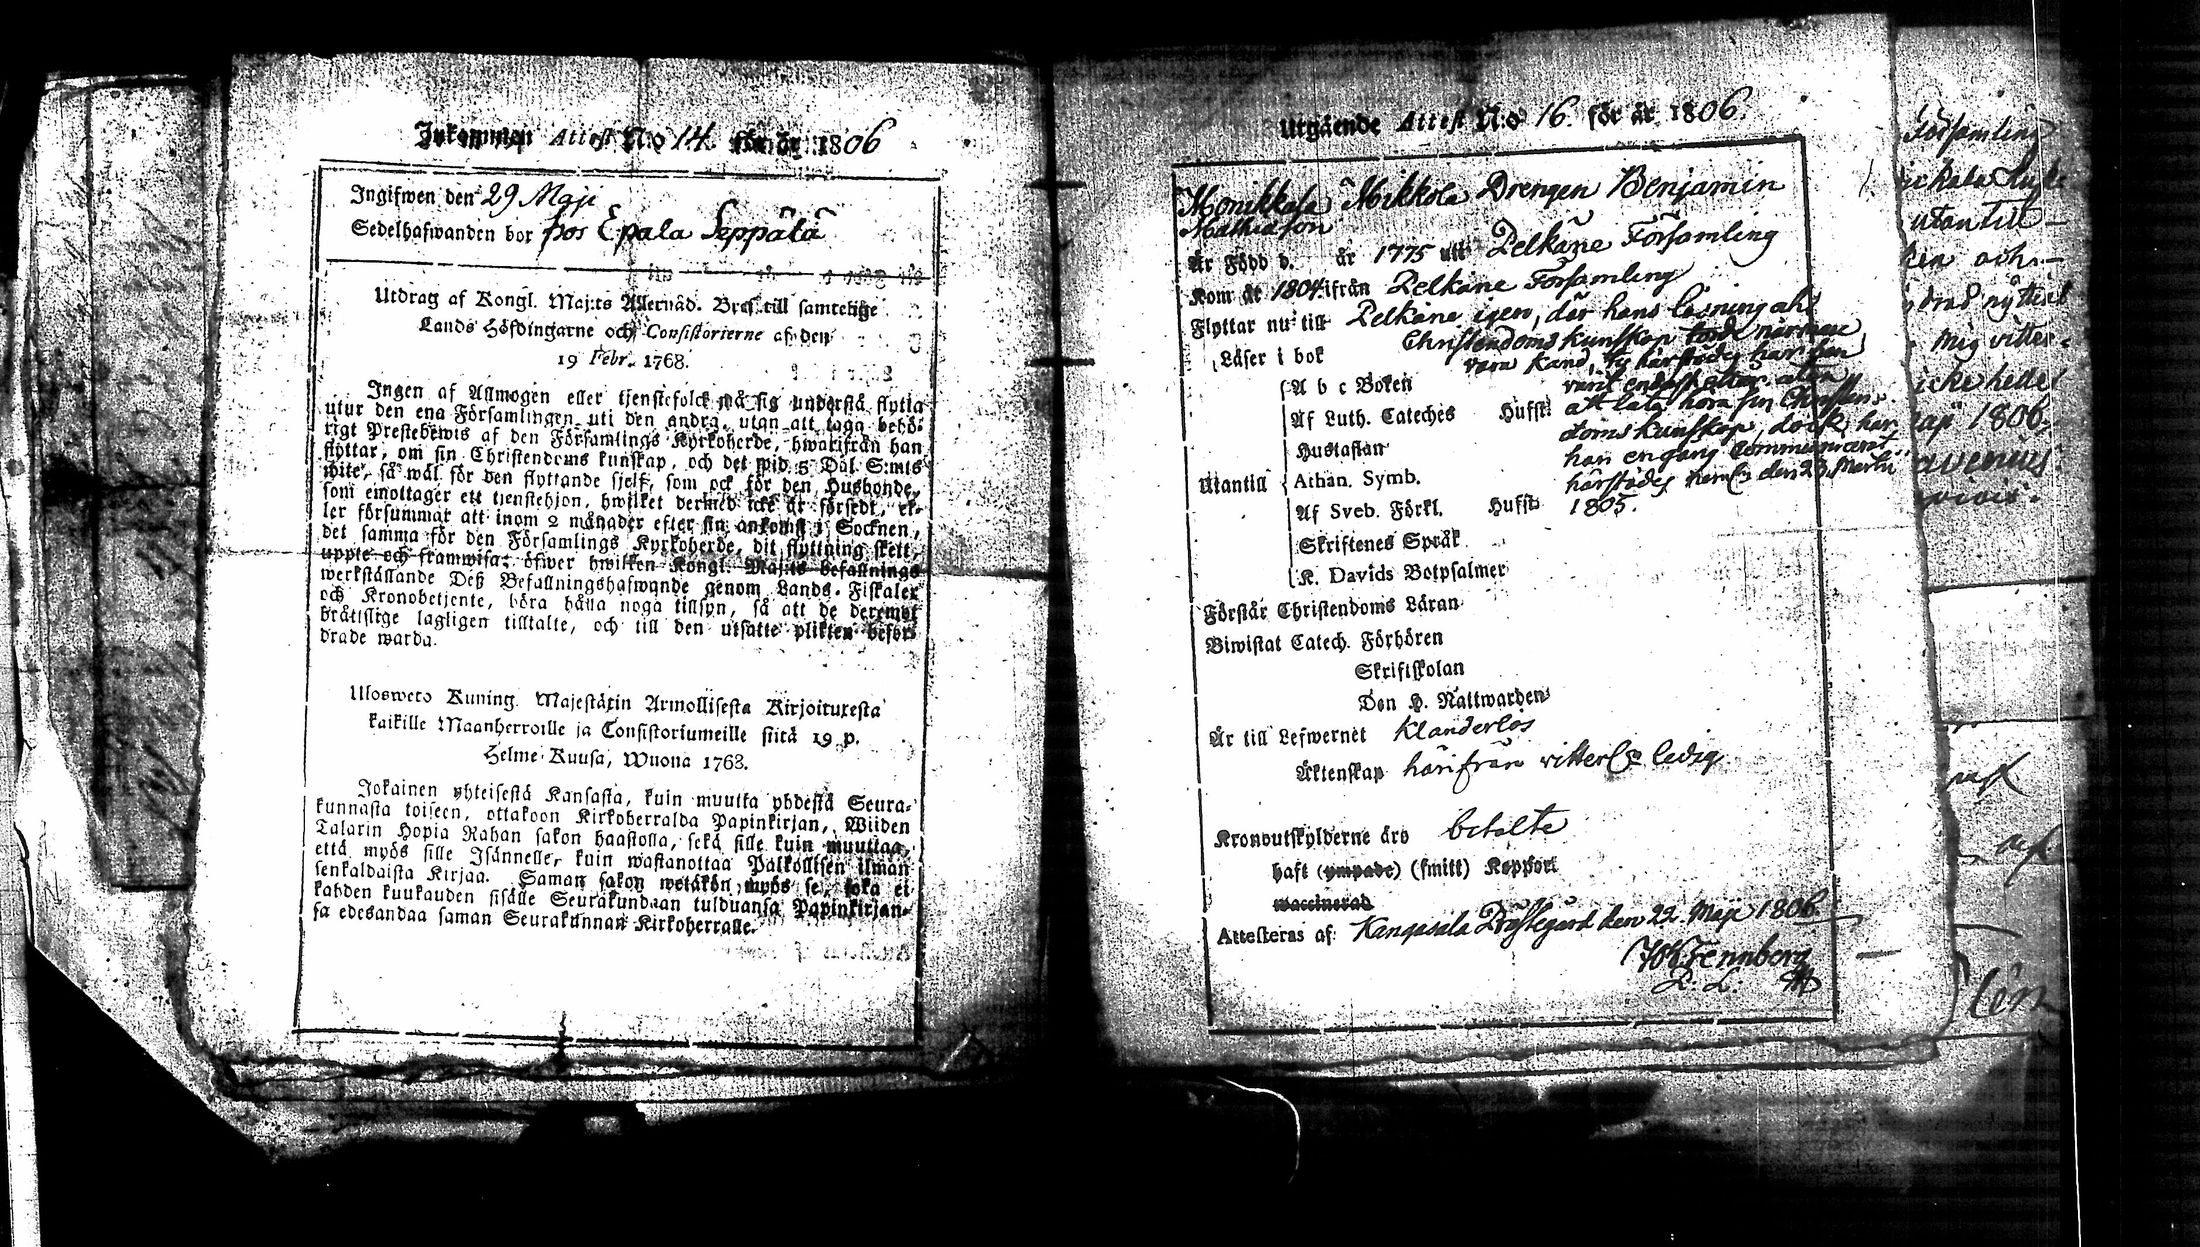 Inkommen Attest N:o 14. för år 1806
Ingifwen den 29 Maji
Sedelhafwanden bor hos Epala Seppälä
Utdrag af Kongl. Maj:ts Allernåd. Bref till samtelige
Lands Höfdingarne och Consistorierne af den
19 Febr. 1768.
Ingen af Allmogen eller tjenstefolck må sig understå flytta
utur den ena Församlingen uti den andra, utan att taga behö-
rigt Prestebewis af den Församlings Kyrkoherde, hwarifrån han
flyttar, om sin Christendoms kunskap, och det wid 5 Dal. S:mts
wite, så wäl för den flyttande sjelf, som ock för den Husbonde,
som emottager ett tienstehjon, hwilket dermed icke är försedt, el-
ler försummar att inom 2 månader efter sin ankomst i Socknen,
det samma för den Församlings Kyrkoherde, dit flyttning skett,
uppte och framwisa: öfwer hwilken Kongl. Maj:ts befallnings
werkställande Deß Befallningshafwande genom Lands-Fiskaler
och Kronobetjente, böra hålla noga tillsyn, så att de deremot
bråttslige lagligen tilltalte, och till den utsatte plikten beford-
rade warda.
Ulosweto Kuning. Majestätin Armollisesta Kirjoituxesta
kaikille Maanherroille ja Consistoriumeille siitä 19 p.
Helme-Kuusa, Wuona 1768.
Jokainen yhteisestä Kansasta, kuin muutta yhdestä Seura-
kunnasta toiseen, ottakoon Kirkoherralda Papinkirjan, Wiiden
Talarin Hopia Rahan sakon haastolla, sekä sille kuin muuttaa,
että myös sille Isännelle, kuin wastanottaa Palkollisen ilman
senkaldaista Kirjaa. Saman sakon wetäkön myös se, joka ei
kahden kuukauden sisälle Seurakundaan tulduansa Papinkirjan-
sa edesandaa saman Seurakunnan Kirkoherralle.
Utgående Attest N:o 16. för år 1806.
Monikkala Mikkola Drengen Benjamin
Mathiason
Är Född d. år 1775 uti Pelkäne Församling
Kom år 1804 ifrån Pelkäne Församling
Flyttar nu till Pelkäne igen, där hans läsning och
Läser i bok Christendoms kunskap torde närmare
vara känd, ty härstädes har han
A b c Boken
Af Luth. Cateches Hufst. att låta höra sin Christen-
doms kunskap, dock har
Hustaflan han en gång Communicerat
Utantill Athan. Symb. härstädes neml. den 23 Martii
Af Sveb. Förkl. Hufst. 1805.
Skriftenes Språk
K. Davids Botpsalmer
Förstår Christendoms Läran
Biwistat Catech. Förhören
Skriftskolan
Den H. Nattwarden
Är till Lefwernet Klanderlös
Äktenskap härifrån vitterl. ledig
Kronoutskylderne äro betalte
haft (ympade) (smitt) Koppor
waccinerad
Attesteras af Kangasala Prästegård den 22. Maji 1806.